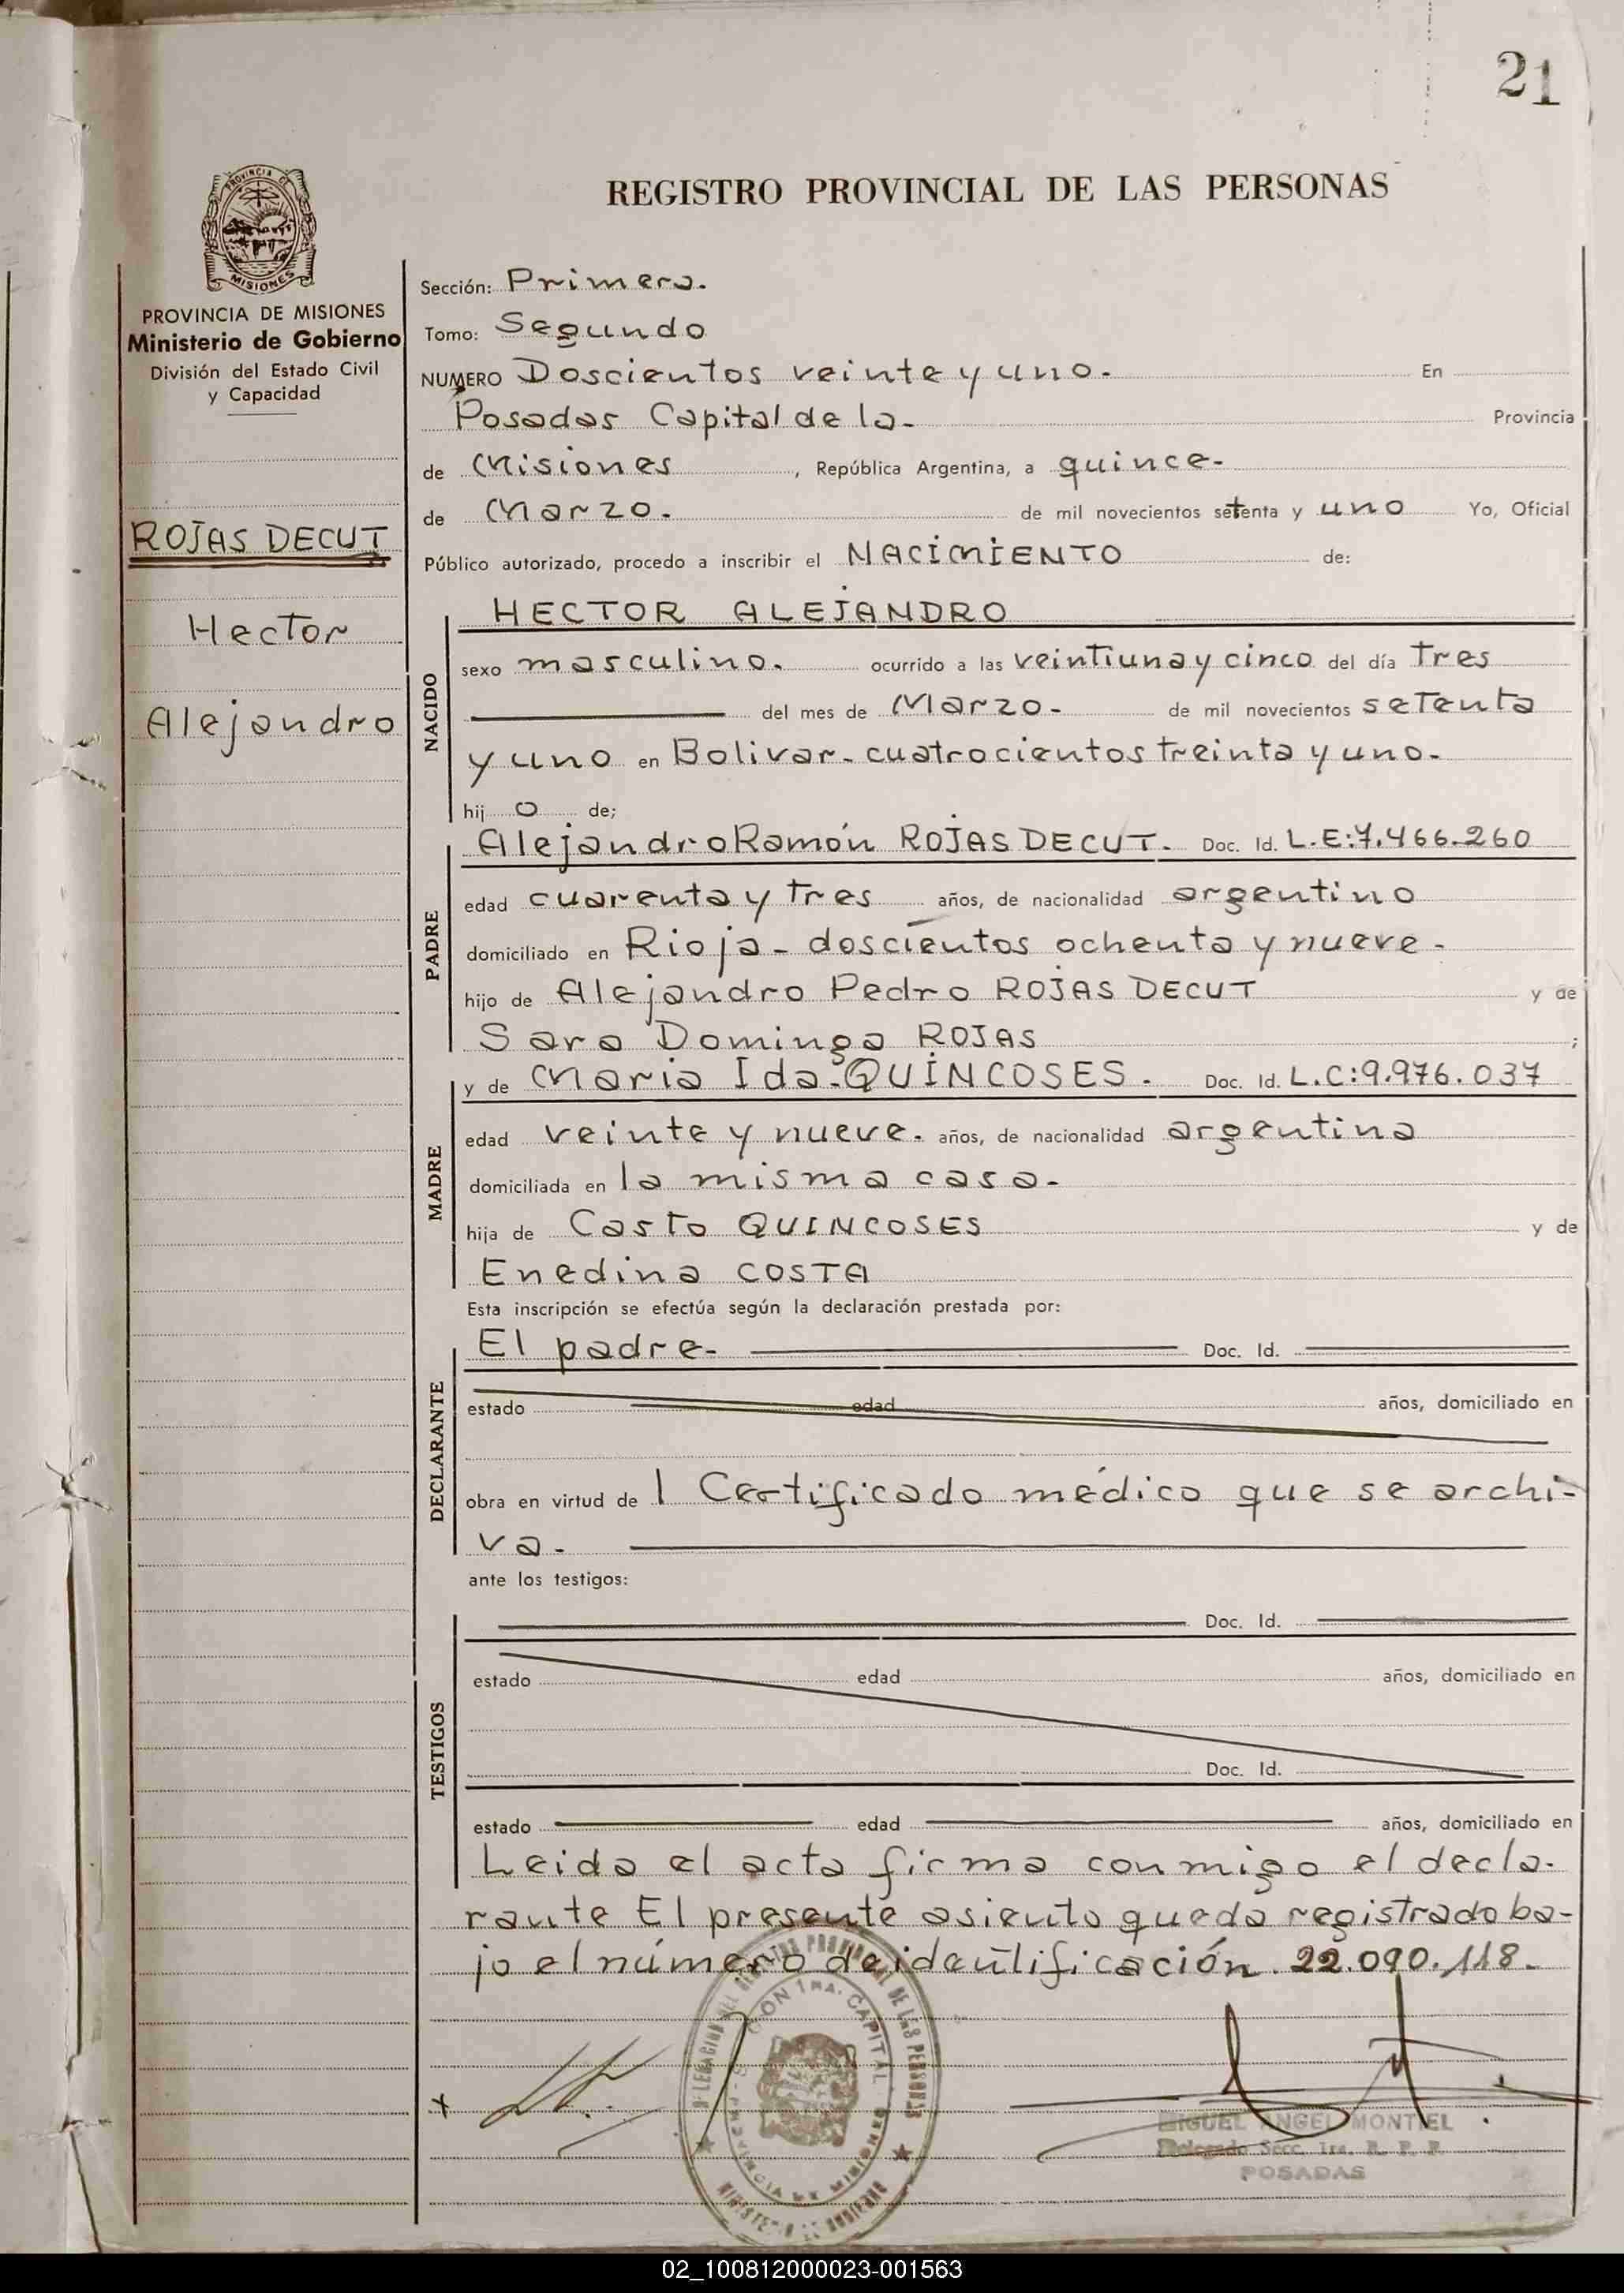 21
REGISTRO PROVINCIAL DE LAS PERSONAS
PROVINCIA DE
MISIONES
PROVINCIA DE MISIONES
Ministerio de Gobierno
División del Estado Civil
y Capacidad
ROJAS DECUT
Hector
Alejandro
Sección: Primera.
Tomo: Segundo
NUMERO Doscientos veinte y uno. En
Posadas Capital de la- Provincia
de Misiones, República Argentina, a quince-
de Marzo. de mil novecientos setenta y uno Yo, Oficial
Público autorizado, procedo a inscribir el NACIMIENTO de:
NACIDO
HECTOR ALEJANDRO
sexo masculino. ocurrido a las veintiuna y cinco del día tres
del mes de Marzo- de mil novecientos setenta
y uno en Bolivar- cuatrocientos treinta y uno-
hij o de;
PADRE
Alejandro Ramón ROJAS DECUT. Doc. Id. L.E:7.466.260
edad cuarenta y tres años, de nacionalidad argentino
domiciliado en Rioja- doscientos ochenta y nueve-
hijo de Alejandro Pedro ROJAS DECUT y de
Sara Dominga ROJAS ;
MADRE
y de Maria Ida-QUINCOSES. Doc. Id. L.C:9.976.037
edad veinte y nueve. años, de nacionalidad argentina
domiciliada en la misma casa-
hija de Casto QUINCOSES y de
Enedina COSTA
Esta inscripción se efectúa según la declaración prestada por:
DECLARANTE
El padre- Doc. Id.
estado edad años, domiciliado en
obra en virtud de 1 Certificado médico que se archi-
va-
ante los testigos:
TESTIGOS
Doc. Id.
estado edad años, domiciliado en
Doc. Id.
estado edad años, domiciliado en
Leida el acta firma conmigo el decla-
rante El presente asiento queda registrado ba-
jo el número de identificación. 22.090.118-
MIGUEL ANGEL MONTIEL
Delegado Secc. 1ra. R. P. P.
POSADAS
02_100812000023-001563